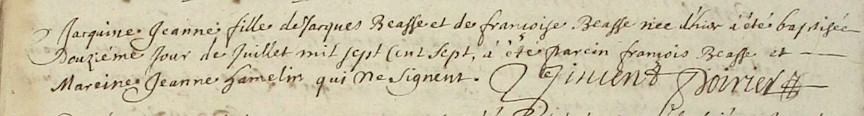 Jacquine Jeanne fille de Jacques Beasse et de francoise Beasse nee d'hier à été baptisée
Douziéme Jour de Juillet mil sept Cent sept, à été parein françois Beasse et
Mareine Jeanne hamelin qui ne signent. Vincent Poirier